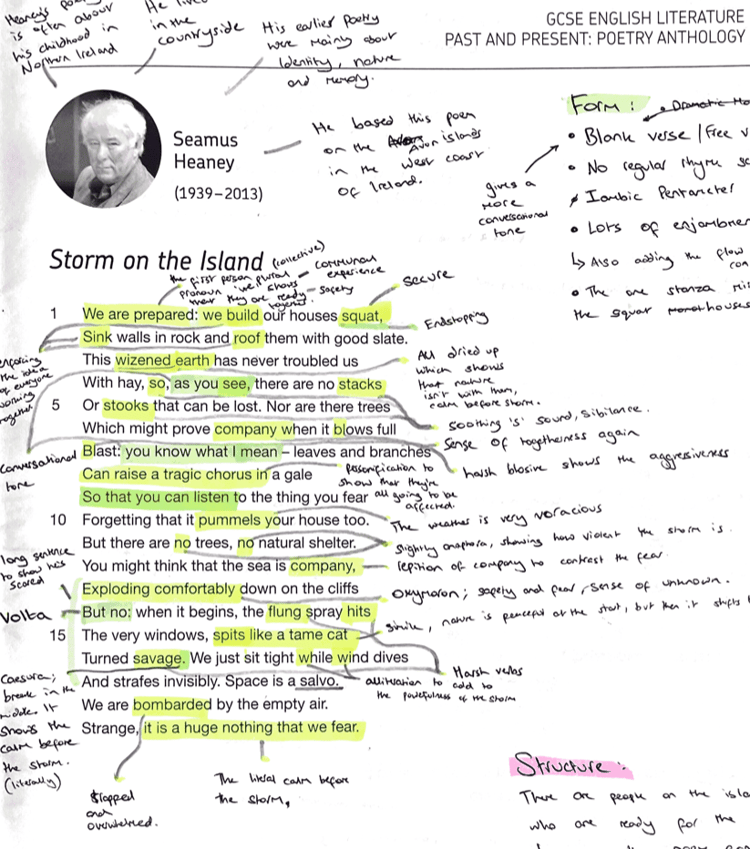 Heaney's
is often about
his childhood in
Northern Ireland
He
in the
countryside
His earlier Poetry
were mainly about
Identity, nature
and memory.
GCSE ENGLISH LITERATURE
PAST AND PRESENT: POETRY ANTHOLOGY
Seamus
Heaney
(1939–2013)
He based this poem
on the Avon islands
in the west coast
of Ireland.
Form:
Dramatic
• Blank verse / Free
• No regular rhyme
Iambic Pentameter
• Lots of
↳ Also adding the flow
• The one stanza
the squat houses
gives a
more
conversational
tone
Storm on the Island
(collective)
the first person plural – communal
pronoun 'we' shows experience
that they are ready – safety
together
secure
1 We are prepared: we build our houses squat,
Endstopping
Sink walls in rock and roof them with good slate.
This wizened earth has never troubled us
With hay, so, as you see, there are no stacks
5 Or stooks that can be lost. Nor are there trees
Which might prove company when it blows full
Blast: you know what I mean – leaves and branches
Can raise a tragic chorus in a gale
So that you can listen to the thing you fear
10 Forgetting that it pummels your house too.
But there are no trees, no natural shelter.
You might think that the sea is company,
Exploding comfortably down on the cliffs
But no: when it begins, the flung spray hits
15 The very windows, spits like a tame cat
Turned savage. We just sit tight while wind dives
And strafes invisibly. Space is a salvo.
We are bombarded by the empty air.
Strange, it is a huge nothing that we fear.
the idea
of everyone
working
together
Conversational
tone
long sentence
to show hes
scared
Volta
Caesura;
break in the
middle. It
shows the
calm before
the storm.
(literally)
All dried up
which shows
that nature
isn't with them,
calm before storm.
soothing 's' sound, Sibilance.
Sense of togetherness again
harsh plosive shows the aggresiveness
Personification to
show that they're
all going to be
affected.
The weather is very voracious
Slightly anaphora, showing how violent the storm is.
repition of company to contrast the fear.
Oxymoron; safety and fear, sense of unknown.
simile, nature is peaceful at the start, but then it shifts
Harsh verbs
alliteration to add to
the powerfulness of the storm
and
The literal calm before
the storm,
Structure:
There are people on the
who are ready for the